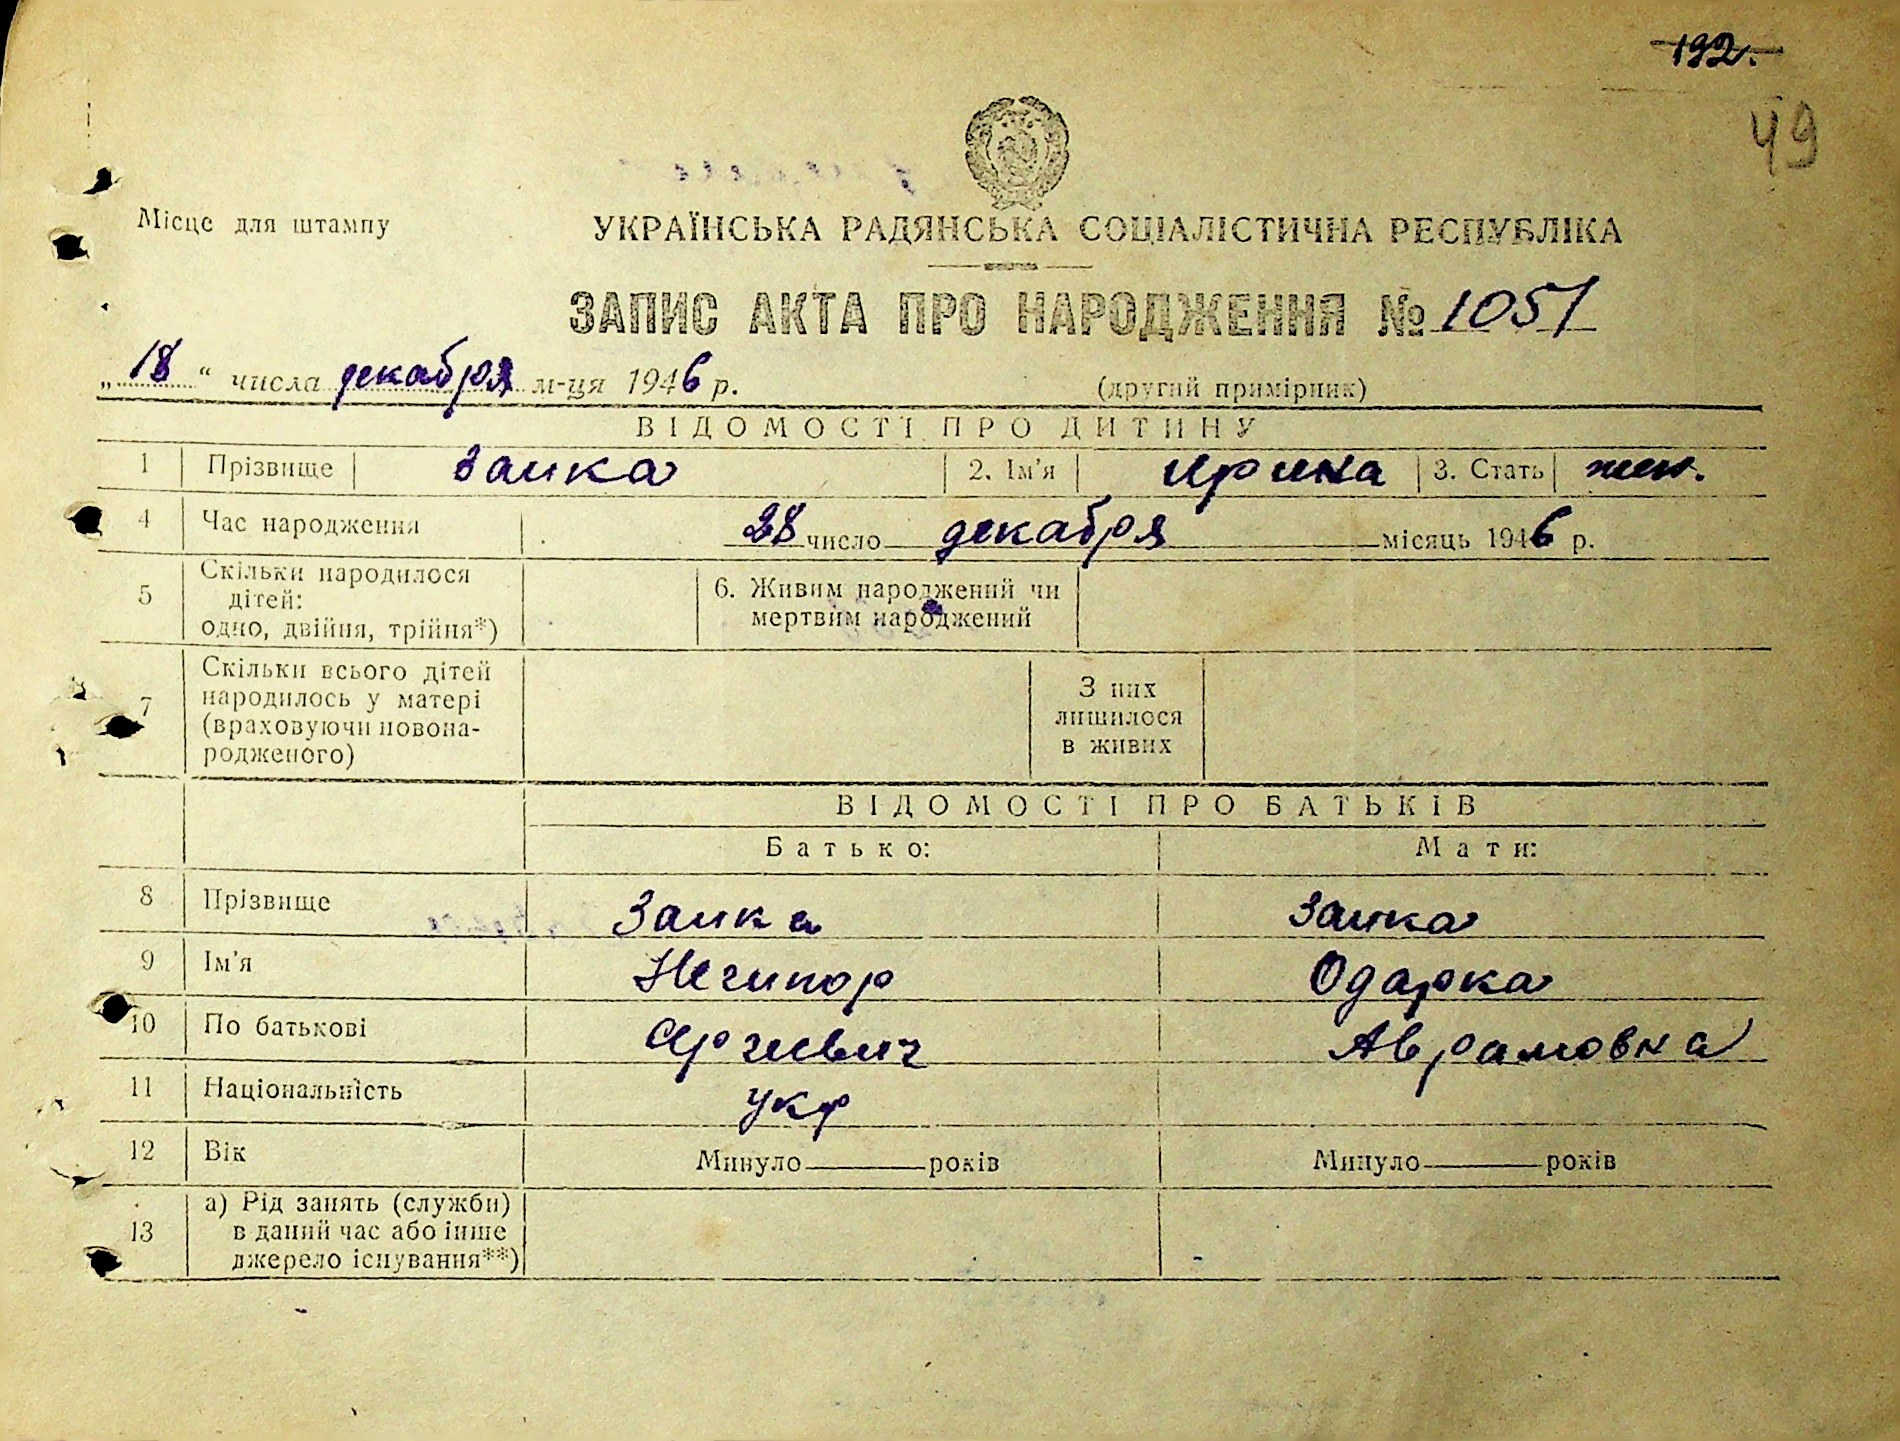 192.
49
Місце для штампу
УКРАЇНСЬКА РАДЯНСЬКА СОЦІАЛІСТИЧНА РЕСПУБЛІКА
ЗАПИС АКТА ПРО НАРОДЖЕННЯ № 1051
„18“ числа декабря м-ця 1946 р. (другий примірник)
ВІДОМОСТІ ПРО ДИТИНУ
1 Прізвище Заика 2. Ім'я Ирина 3. Стать жен.
4 Час народження 28 число декабря місяць 1946 р.
5 Скільки народилося дітей: одно, двійня, трійня*) 6. Живим народжений чи мертвим народжений
7 Скільки всього дітей народилось у матері (враховуючи новонародженого) З них лишилося в живих
ВІДОМОСТІ ПРО БАТЬКІВ
Батько: Мати:
8 Прізвище Заика Заика
9 Ім'я Нечипор Одарка
10 По батькові Аврамовна
11 Національність укр
12 Вік Минуло років Минуло років
13 а) Рід занять (служби) в даний час або інше джерело існування**)